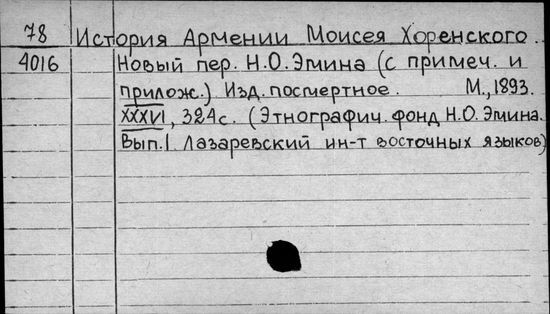 78 История Армении Моисея Хоренского.
4016 Новый пер. Н.О.Эмина (с примеч. и
прилож.) Изд. посмертное. М., 1893.
XXXVI, 324с. (Этнографич. фонд Н.О.Эмина.
Вып.1. Лазаревский ин-т восточных языков)